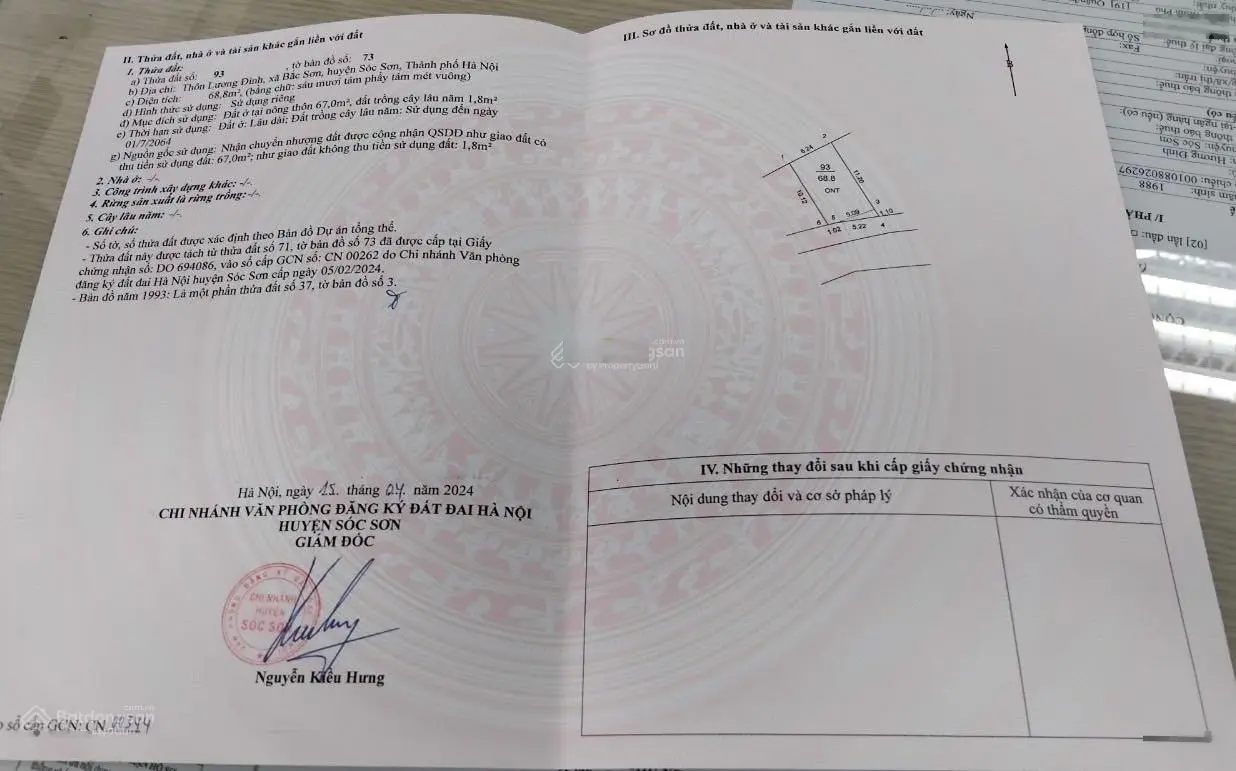 II. Thửa đất, nhà ở và tài sản khác gắn liền với đất
1. Thửa đất:
a) Thửa đất số: 93 , tờ bản đồ số: 73
b) Địa chỉ: Thôn Lương Đình, xã Bắc Sơn, huyện Sóc Sơn, Thành phố Hà Nội
c) Diện tích: 68,8m², (bằng chữ: sáu mươi tám phẩy tám mét vuông)
d) Hình thức sử dụng: Sử dụng riêng
đ) Mục đích sử dụng: Đất ở tại nông thôn 67,0m², đất trồng cây lâu năm 1,8m²
e) Thời hạn sử dụng: Đất ở: Lâu dài; Đất trồng cây lâu năm: Sử dụng đến ngày
01/7/2064
g) Nguồn gốc sử dụng: Nhận chuyển nhượng đất được công nhận QSDĐ như giao đất có
thu tiền sử dụng đất: 67,0m²; như giao đất không thu tiền sử dụng đất: 1,8m²
2. Nhà ở: -/-
3. Công trình xây dựng khác: -/-
4. Rừng sản xuất là rừng trồng: -/-
5. Cây lâu năm: -/-
6. Ghi chú:
- Số tờ, số thửa đất được xác định theo Bản đồ Dự án tổng thể.
- Thửa đất này được tách từ thửa đất số 71, tờ bản đồ số 73 đã được cấp tại Giấy
chứng nhận số: DO 694086, vào sổ cấp GCN số: CN 00262 do Chi nhánh Văn phòng
đăng ký đất đai Hà Nội huyện Sóc Sơn cấp ngày 05/02/2024.
- Bản đồ năm 1993: Là một phần thửa đất số 37, tờ bản đồ số 3.
Hà Nội, ngày 15 tháng 04 năm 2024
CHI NHÁNH VĂN PHÒNG ĐĂNG KÝ ĐẤT ĐAI HÀ NỘI
HUYỆN SÓC SƠN
GIÁM ĐỐC
CHI NHÁNH
HUYỆN
SÓC SƠN
Nguyễn Kiều Hưng
sổ cấp GCN: CN 00344
III. Sơ đồ thửa đất, nhà ở và tài sản khác gắn liền với đất
B
1 6.24 2
93
68.8
ONT
10.12 11.20
6 5 5.09 3
1.02 5.22 4 1.10
by PropertyGuru
IV. Những thay đổi sau khi cấp giấy chứng nhận
Nội dung thay đổi và cơ sở pháp lý
Xác nhận của cơ quan
có thẩm quyền